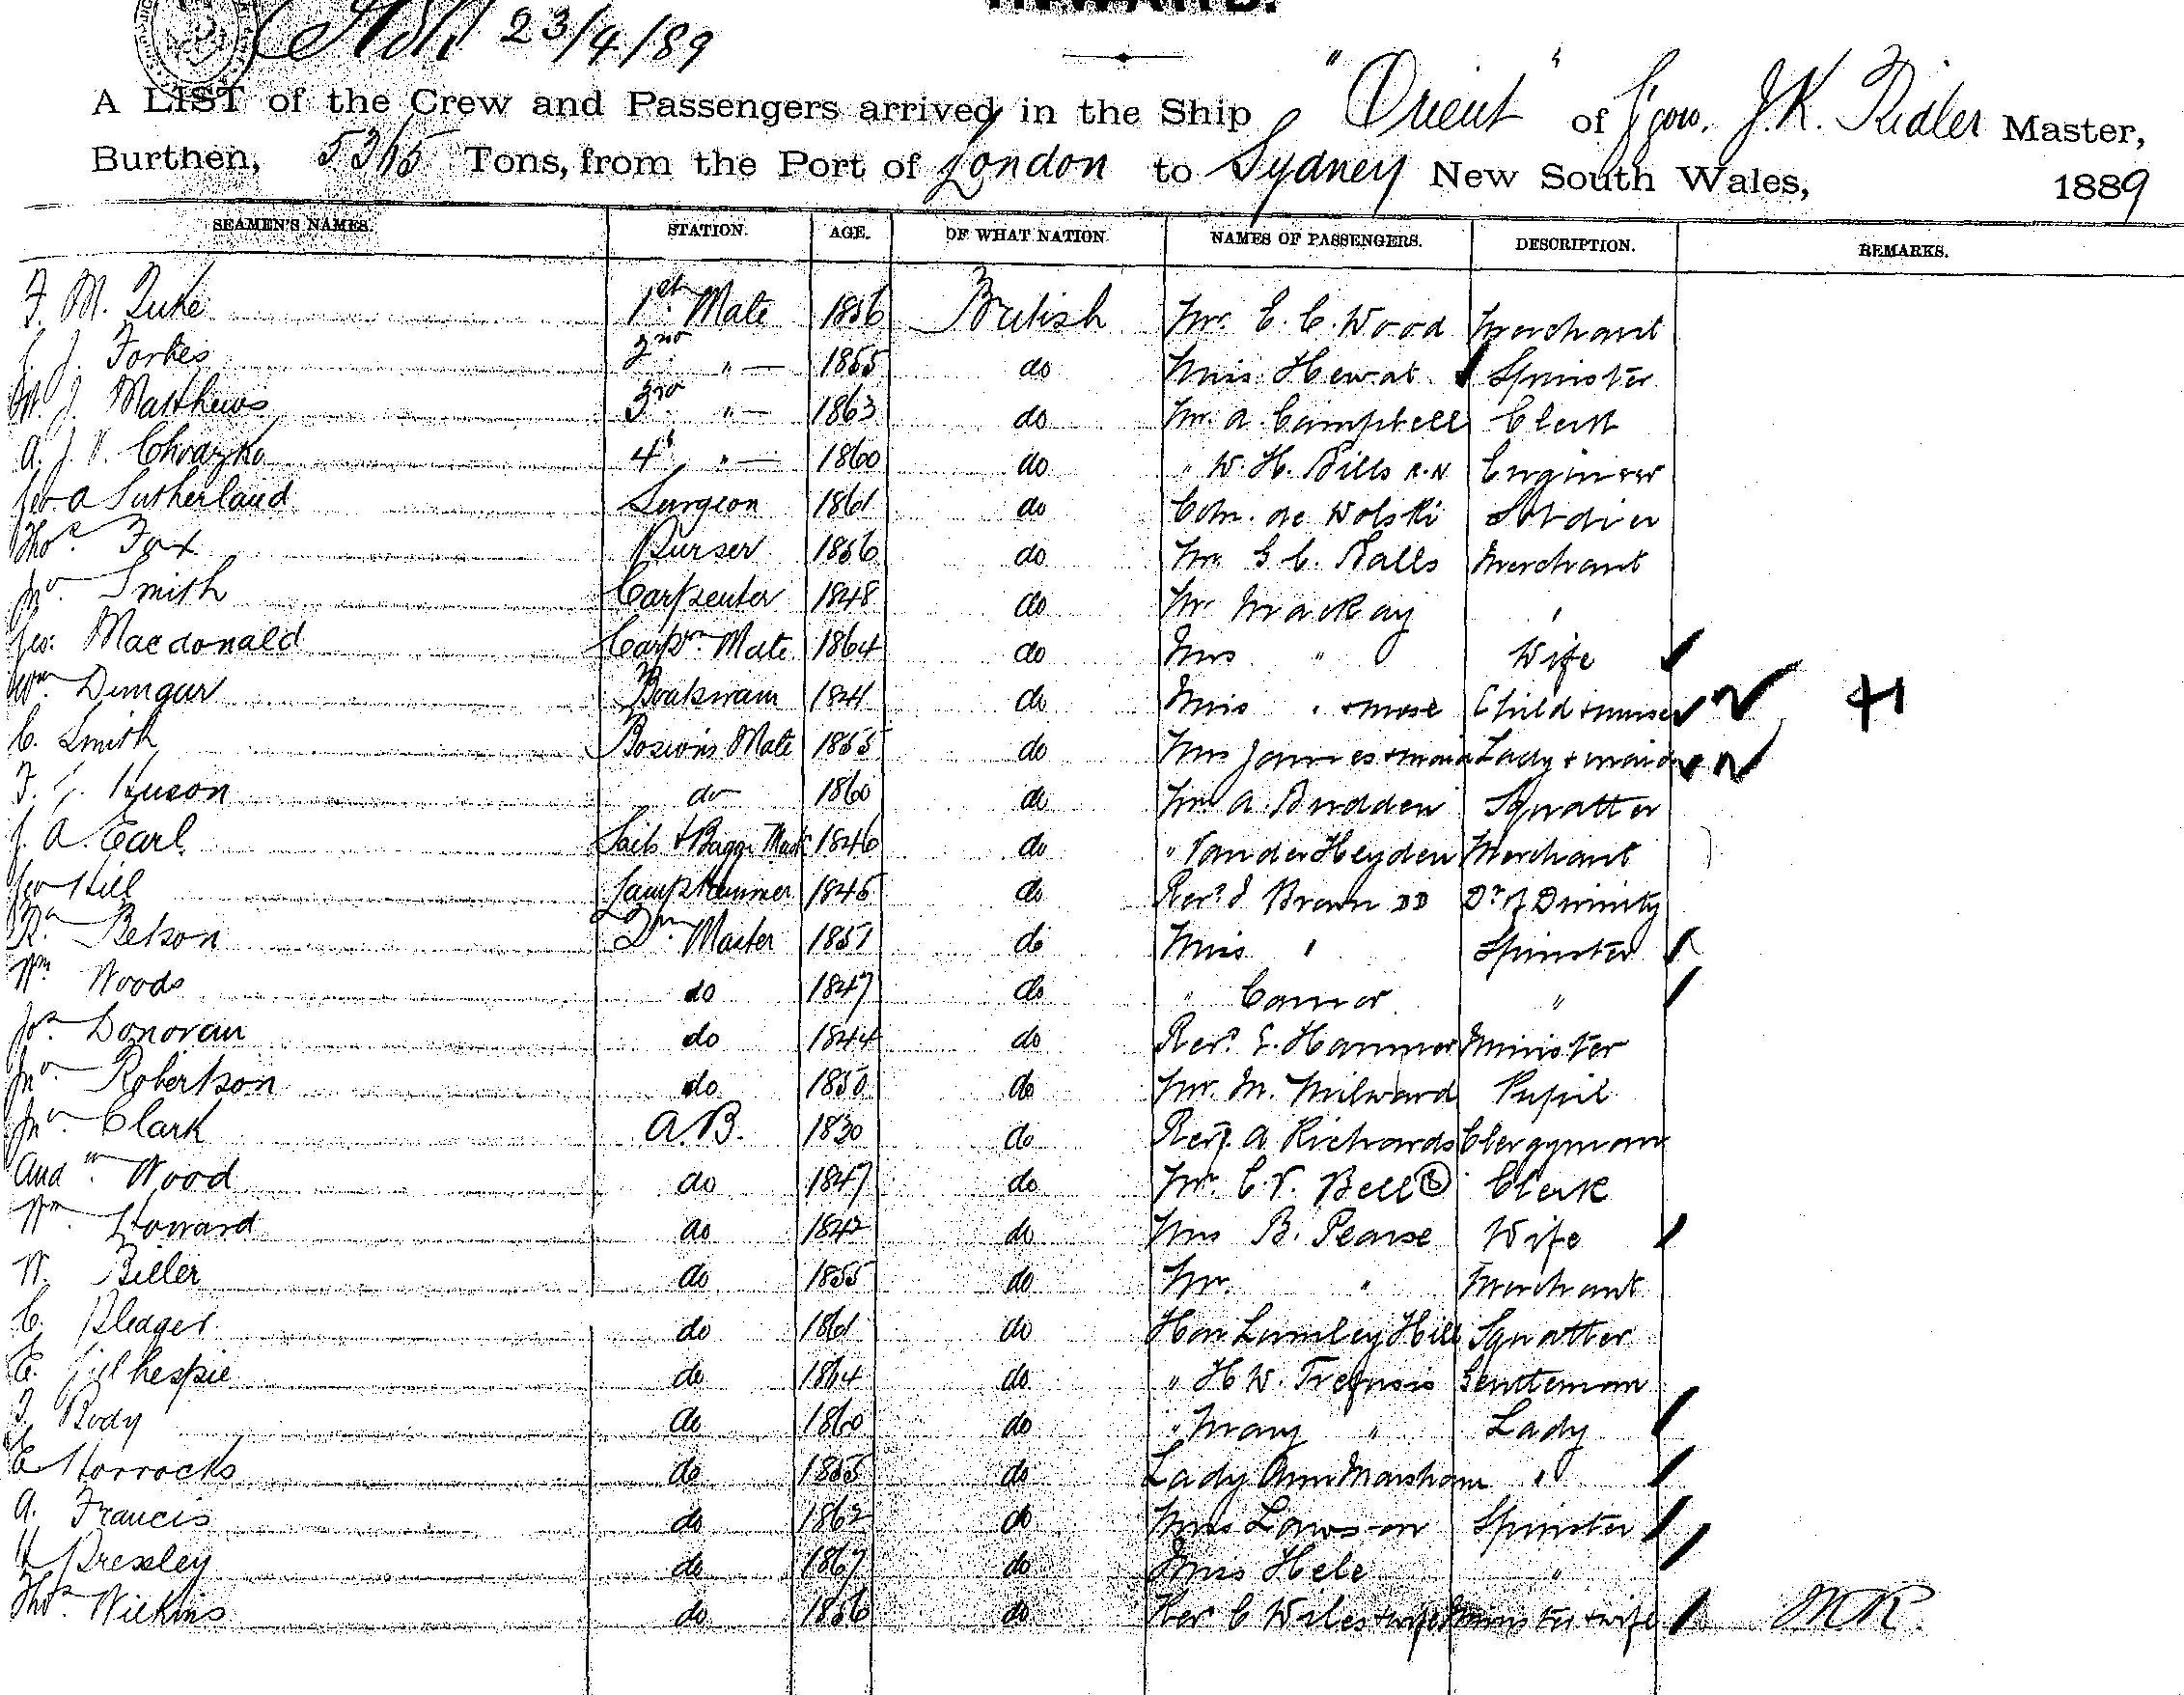 INWARD.
23/4/89
A LIST of the Crew and Passengers arrived in the Ship "Orient" of Ggow. J.K. Ridler Master,
Burthen, 5365 Tons, from the Port of London to Sydney New South Wales, 1889
SEAMEN'S NAMES. STATION. AGE. OF WHAT NATION. NAMES OF PASSENGERS. DESCRIPTION. REMARKS.
F. M. Tuke 1st Mate 1856 British Mr. E. C. Wood Merchant
J. Forbes 2nd "— 1855 do Miss Hewat Spinster
J. Matthews 3rd "— 1863 do Mr. A. Campbell Clerk
A. J. V. Chrazko 4th "— 1860 do " W. H. Bills R.N Engineer
Geo A Sutherland Surgeon 1861 do de Wolski Soldier
Thos. Fox Purser 1856 do Mr. G. C. Ralls Merchant
Jno. Smith Carpenter 1848 do Mr Mackay "
Geo: Macdonald Carprs. Mate 1864 do Mrs " Wife
Wm. Dungar Boatswain 1841 do Miss " + nurse Child + nurse
C. Smith Boswns Mate 1855 do Mrs James + maid Lady + maid
F. Huson do 1860 do Mr. A. Budden Squatter
J. A. Earl Sails & Bagge Mastr 1846 do " Van der Heyden Merchant
Geo Hill Lamptrimmer 1845 do Revd. J Brown DD Dr of Divinity
Rd. Betson Qr. Master 1851 do Miss " Spinster
Wm. Woods do 1847 do " Comer "
Jos. Donovan do 1844 do Revd. E. Hammer Minister
Jno. Robertson do 1850 do Mr. M. Milward Pupil
Jno. Clark A.B. 1830 do Revd. A Richards Clergyman
Andw. Wood do 1847 do Mr. C. V. Bell Clerk
Wm. Howard do 1842 do Mrs B. Pearse Wife
W. Biller do 1855 do Mr. " Merchant
C. Pledger do 1861 do Hon. Lumley Hill Squatter
E. Gillhespie do 1864 do " H W. Trefusis Gentleman
J. Body do 1860 do " Mary " Lady
E Horrocks do 1855 do Lady Ann Marsham "
A. Francis do 1862 do Miss Lawson Spinster
H Pressley do 1867 do Miss Hele "
Thos. Wilkins do 1856 do Revd C Wiles + wife Minister + wife M.R.